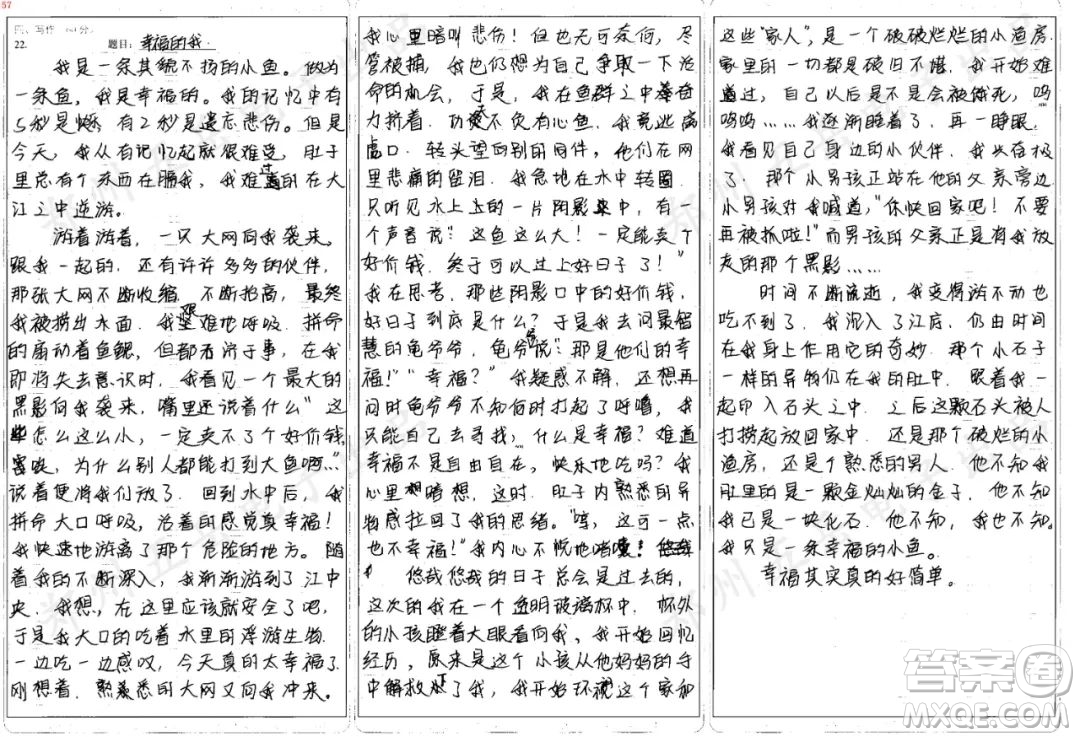 57
四、写作（60分）
22. 题目：幸福的我.
我是一条其貌不扬的小鱼。做为
一条鱼，我是幸福的。我的记忆中有
5秒是 有2秒是遗忘悲伤。但是
今天，我从有记忆起就很难受，肚子
里总有个东西在膈我，我难过的在大
江之中逆游。
游着游着，一只大网向我袭来。
跟我一起的，还有许许多多的伙伴，
那张大网不断收缩，不断抬高，最终
我被捞出水面．我艰难地呼吸．拼命
的扇动着鱼鳃，但都无济于事，在我
即将失去意识时，我看见一个最大的
黑影向我袭来，嘴里还说着什么"这
些怎么这么小，一定卖不了个好价钱，
害哎，为什么别人都能打到大鱼啊…"
说着便将我们放了．回到水中后，我
拼命大口呼吸，活着的感觉真幸福！
我快速地游离了那个危险的地方。随
着我的不断深入，我渐渐游到了江中
央．我想，在这里应该就安全了吧，
于是我大口的吃着水里的浮游生物．
一边吃一边感叹，今天真的太幸福了
刚想着．熟悉的大网又向我冲来。
我心里暗叫悲伤！但也无可奈何，尽
管被捕，我也仍想为自己争取一下活
命的机会，于是，在鱼群之中奋
力挤着．功夫不负有心鱼，我竟逃离
虎口．转头望向别的同伴，他们在网
里悲痛的留泪．我急地在水中转圈．
只听见水上的一片阴影中，有一
个声音说："这鱼这么大！一定能卖个
好价钱．终于可以过上好日子了！"
我在思考．那些阴影口中的好价钱，
好日子到底是什么？于是我去问最智
慧的龟爷爷，龟爷爷说："那是他们的幸
福！""幸福？"我疑惑不解，还想再
问时龟爷爷不知何时打起了呼噜，我
只能自己去寻找，什么是幸福？难道
幸福不是自由自在，快乐地吃吗？我
心里暗想，这时．肚子内熟悉的异
物感拉回了我的思绪。"哼，这可一点
也不幸福！"我内心不悦地嘟囔！
悠哉悠哉的日子总会是过去
这次的我在一个透明玻璃杯中．杯外
的小孩瞪着大眼看向我，我开始回忆
经历，原来是这个小孩从他妈妈的手
中解救下了我，我开始环视这个家和
这些"家人"，是一个破破烂烂的小渔房．
家里的一切都是破旧不堪，我开始难
过，自己以后是不是会被饿死，呜
呜呜……我逐渐睡着了，再一睁眼．
我看见了自己身边的小伙伴．我兴奋极
了，那个小男孩正站在他的父亲旁边．
小男孩对我喊道，"你快回家吧！不要
再被抓啦！"而男孩的父亲正是有我放
走的那个黑影……
时间不断流逝，我变得游不动也
吃不到了．我沉入了江底．仍由时间
在我身上作用它的奇妙．那个小石子
一样的异物仍在我的肚中．随着我一
起印入石头之中．之后这颗石头被人
打捞起放回家中．还是那个破烂的小
渔房，还是个熟悉的男人．他不知我
肚里的是一颗金灿灿的金子，他不知
我已是一块化石．他不知，我也不知。
我只是一条幸福的小鱼。
幸福其实真的好简单。
答案圈
MXQE.COM